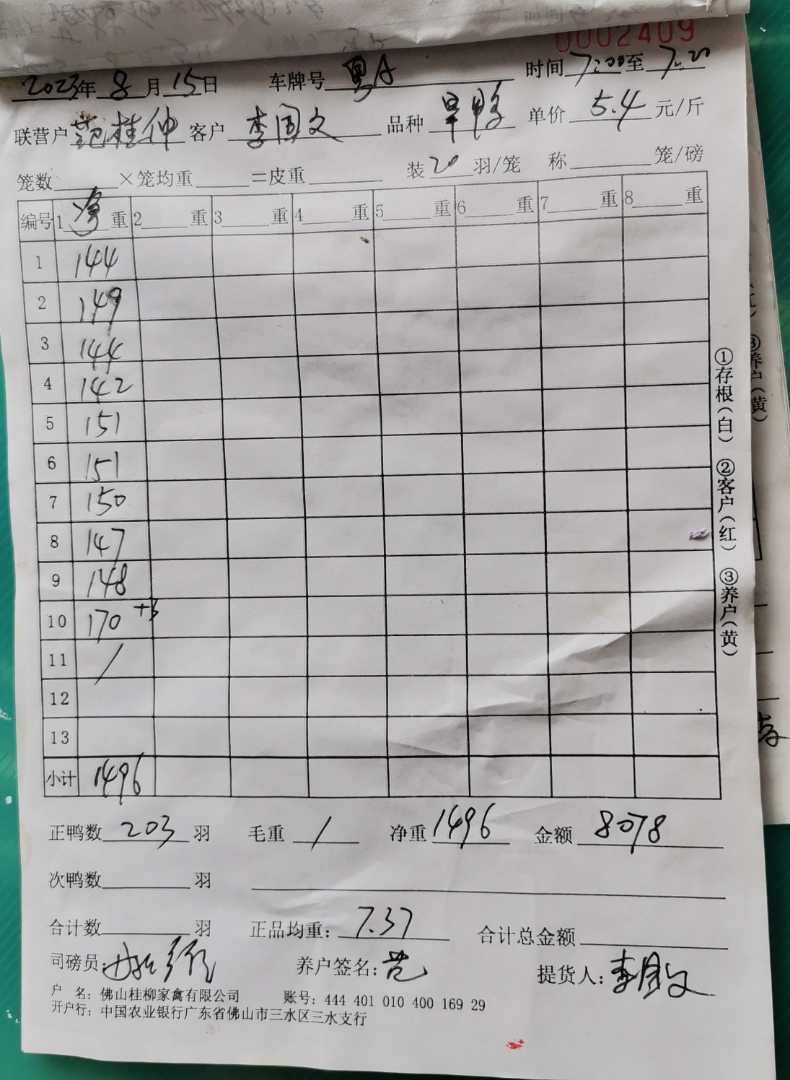 0002409
2023年 8 月 15 日 车牌号 粤A 时间 7:00 至 7:20
联营户 范桂仲 客户 李国文 品种 旱鸭 单价 5.4 元/斤
笼数 ×笼均重 =皮重 装 20 羽/笼 称 笼/磅
编号 1 净 重 2 重 3 重 4 重 5 重 6 重 7 重 8 重
1 144
2 149
3 144
4 142
5 151
6 151
7 150
8 147
9 148
10 170 +3
11 /
12
13
小计 1496
正鸭数 203 羽 毛重 / 净重 1496 金额 8078
次鸭数 羽
合计数 羽 正品均重: 7.37 合计总金额
司磅员: 养户签名: 范 提货人: 李国文
户 名: 佛山桂柳家禽有限公司 账号: 444 401 010 400 169 29
开户行: 中国农业银行广东省佛山市三水区三水支行
①存根(白) ②客户(红) ③养户(黄)
③养户(黄)